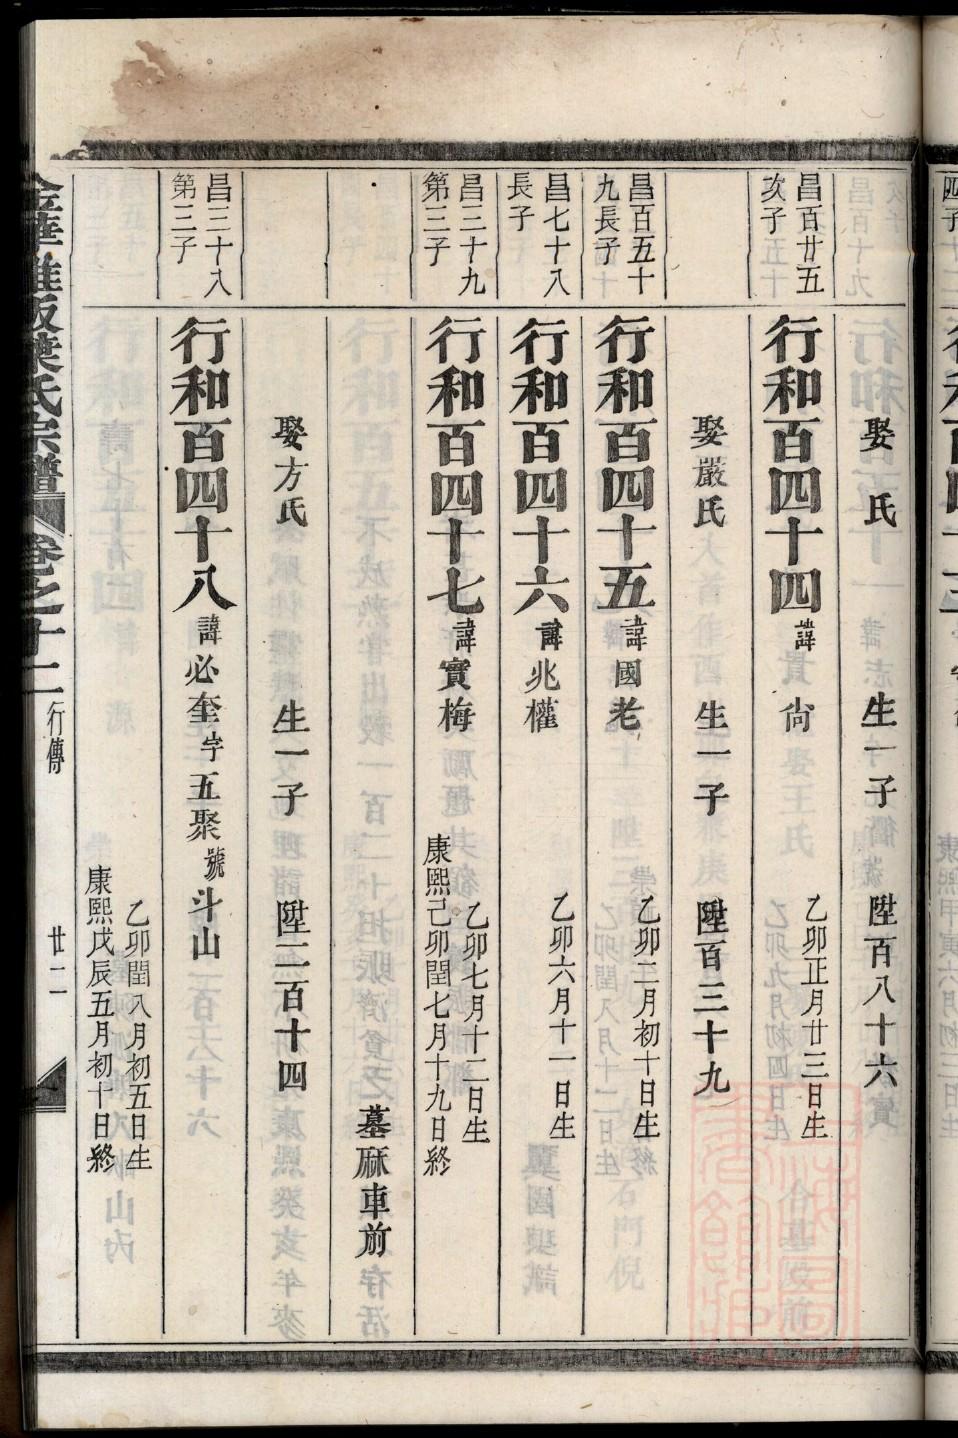 娶　氏　生一子　陞百八十六
昌百廿五
次子
行和百四十四　諱尙　乙卯正月廿三日生
娶嚴氏　生一子　陞百三十九
昌百五十
九長子
行和百四十五　諱國老　乙卯二月初十日生
昌七十八
長子
行和百四十六　諱兆權　乙卯六月十一日生
昌三十九
第三子
行和百四十七　諱實梅　乙卯七月十二日生
康熙己卯閏七月十九日終
墓麻車前
娶方氏　生一子　陞二百十四
昌三十八
第三子
行和百四十八　諱必奎　字五聚　號斗山
乙卯閏八月初五日生
康熙戊辰五月初十日終
葉氏宗譜　卷之十二　行傳　廿二